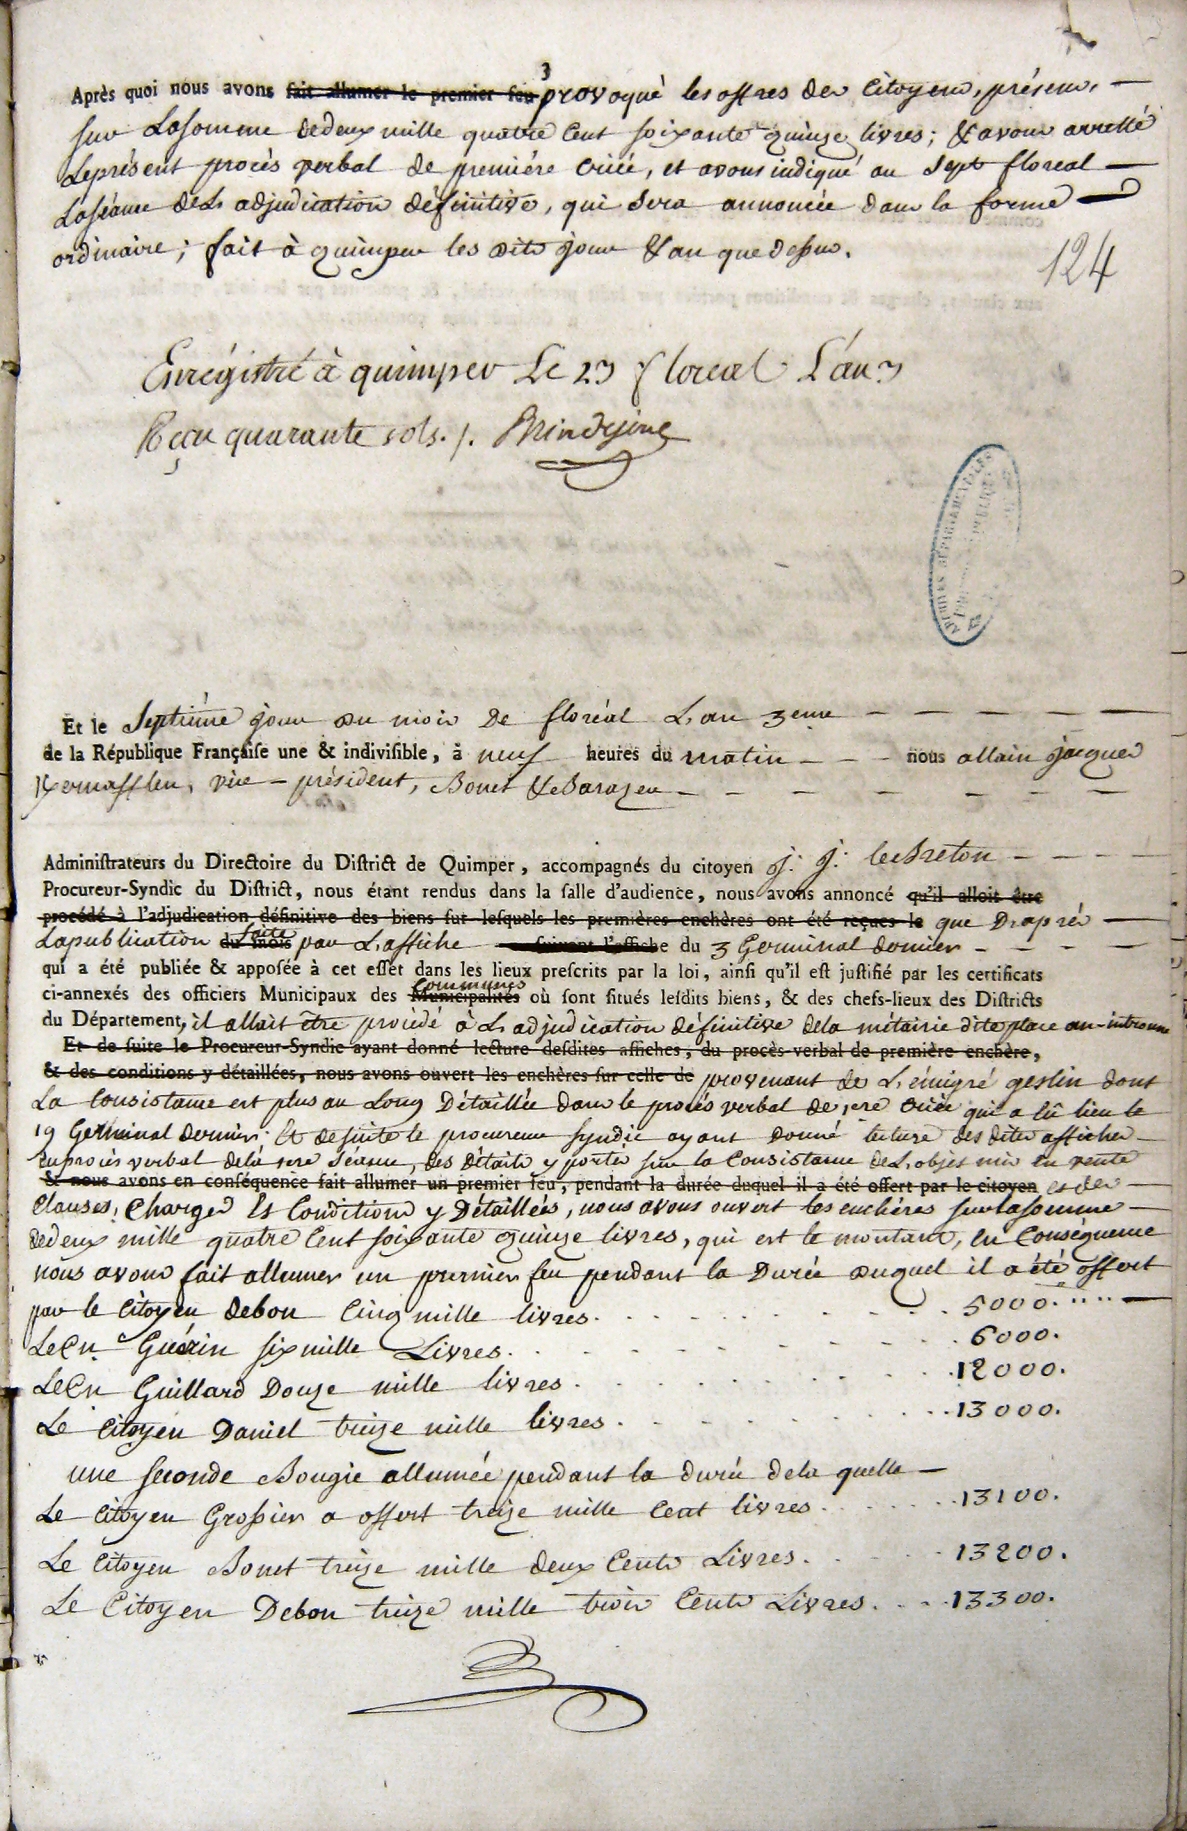 3
Après quoi nous avons fait allumer le premier feu provoqué les offres des Citoyens, présens,
sur Lasomme dedeux mille quatre Cent soixante quinze livres; & avons arretté
Leprésent procés verbal de premiére criée, et avons indiqué au Sept floreal
Laséance deL adjudication définitive, qui sera annoncée dans la forme
ordinaire; fait à quimper les dits jour & an que dessus.
124
Enrégistré à quimper Le 23 floreal L'an 3
Reçu quarante sols./.
ARCHIVES DÉPARTEMENTALES
Et le Septiéme jour du mois De floréal L'an 3eme
de la République Françaiſe une & indiviſible, à neuf heures du matin nous allain jacques
Kernafflen, vice-président, Bonet & leBarazer
Adminiſtrateurs du Directoire du Diſtrict de Quimper, accompagnés du citoyen J. J. leBreton
Procureur-Syndic du Diſtrict, nous étant rendus dans la ſalle d'audience, nous avons annoncé qu'il alloit être
procédé à l'adjudication définitive des biens ſur leſquels les premières enchères ont été reçues le que D'aprés
Lapublication du mois faite par L'affiche ſuivant l'affiche du 3 Germinal dernier
qui a été publiée & appoſée à cet effet dans les lieux preſcrits par la loi, ainſi qu'il eſt juſtifié par les certificats
ci-annexés des officiers Municipaux des Municipalités Communes où ſont ſitués leſdits biens, & des chefs-lieux des Diſtricts
du Département, il allait être procédé à L adjudication définitive dela métairie dite place an-introun
Et de ſuite le Procureur-Syndic ayant donné lecture deſdites affiches, du procès-verbal de première enchère,
& des conditions y détaillées, nous avons ouvert les enchères ſur celle de provenant de L'émigré gestin dont
La Consistance est plus au Long Détaillée dans le procés verbal de 1ere criée qui a eû lieu le
19 Germinal dernier. Et desuite le procureur syndic ayant donné lecture des dites affiches
duprocés verbal dela 1ere séance, des détails y portés sur la Consistance deL'objet mis en vente
& nous avons en conſéquence fait allumer un premier feu, pendant la durée duquel il a été offert par le citoyen et des
Clauses, Charges Et Conditions y Détaillées, nous avons ouvert les enchéres sur lasomme
dedeux mille quatre Cent soixante quinze livres, qui est le montant, en Conséquence
nous avons fait allumer un premier feu pendant la Durée duquel il a été offert
par le Citoyen debon Cinq mille livres. 5000.
Le Cn Guérin six mille Livres. 6000.
Le Cn Guillard Douze mille livres. 12000.
Le Citoyen Daniel treize mille livres. 13000.
une seconde Bougie allumée pendant la durée dela quelle
Le Citoyen Grossier a offert treize mille Cent livres. 13100.
Le Citoyen Bonet treize mille deux Cents Livres. 13200.
Le Citoyen Debon treize mille trois Cents Livres. 13300.